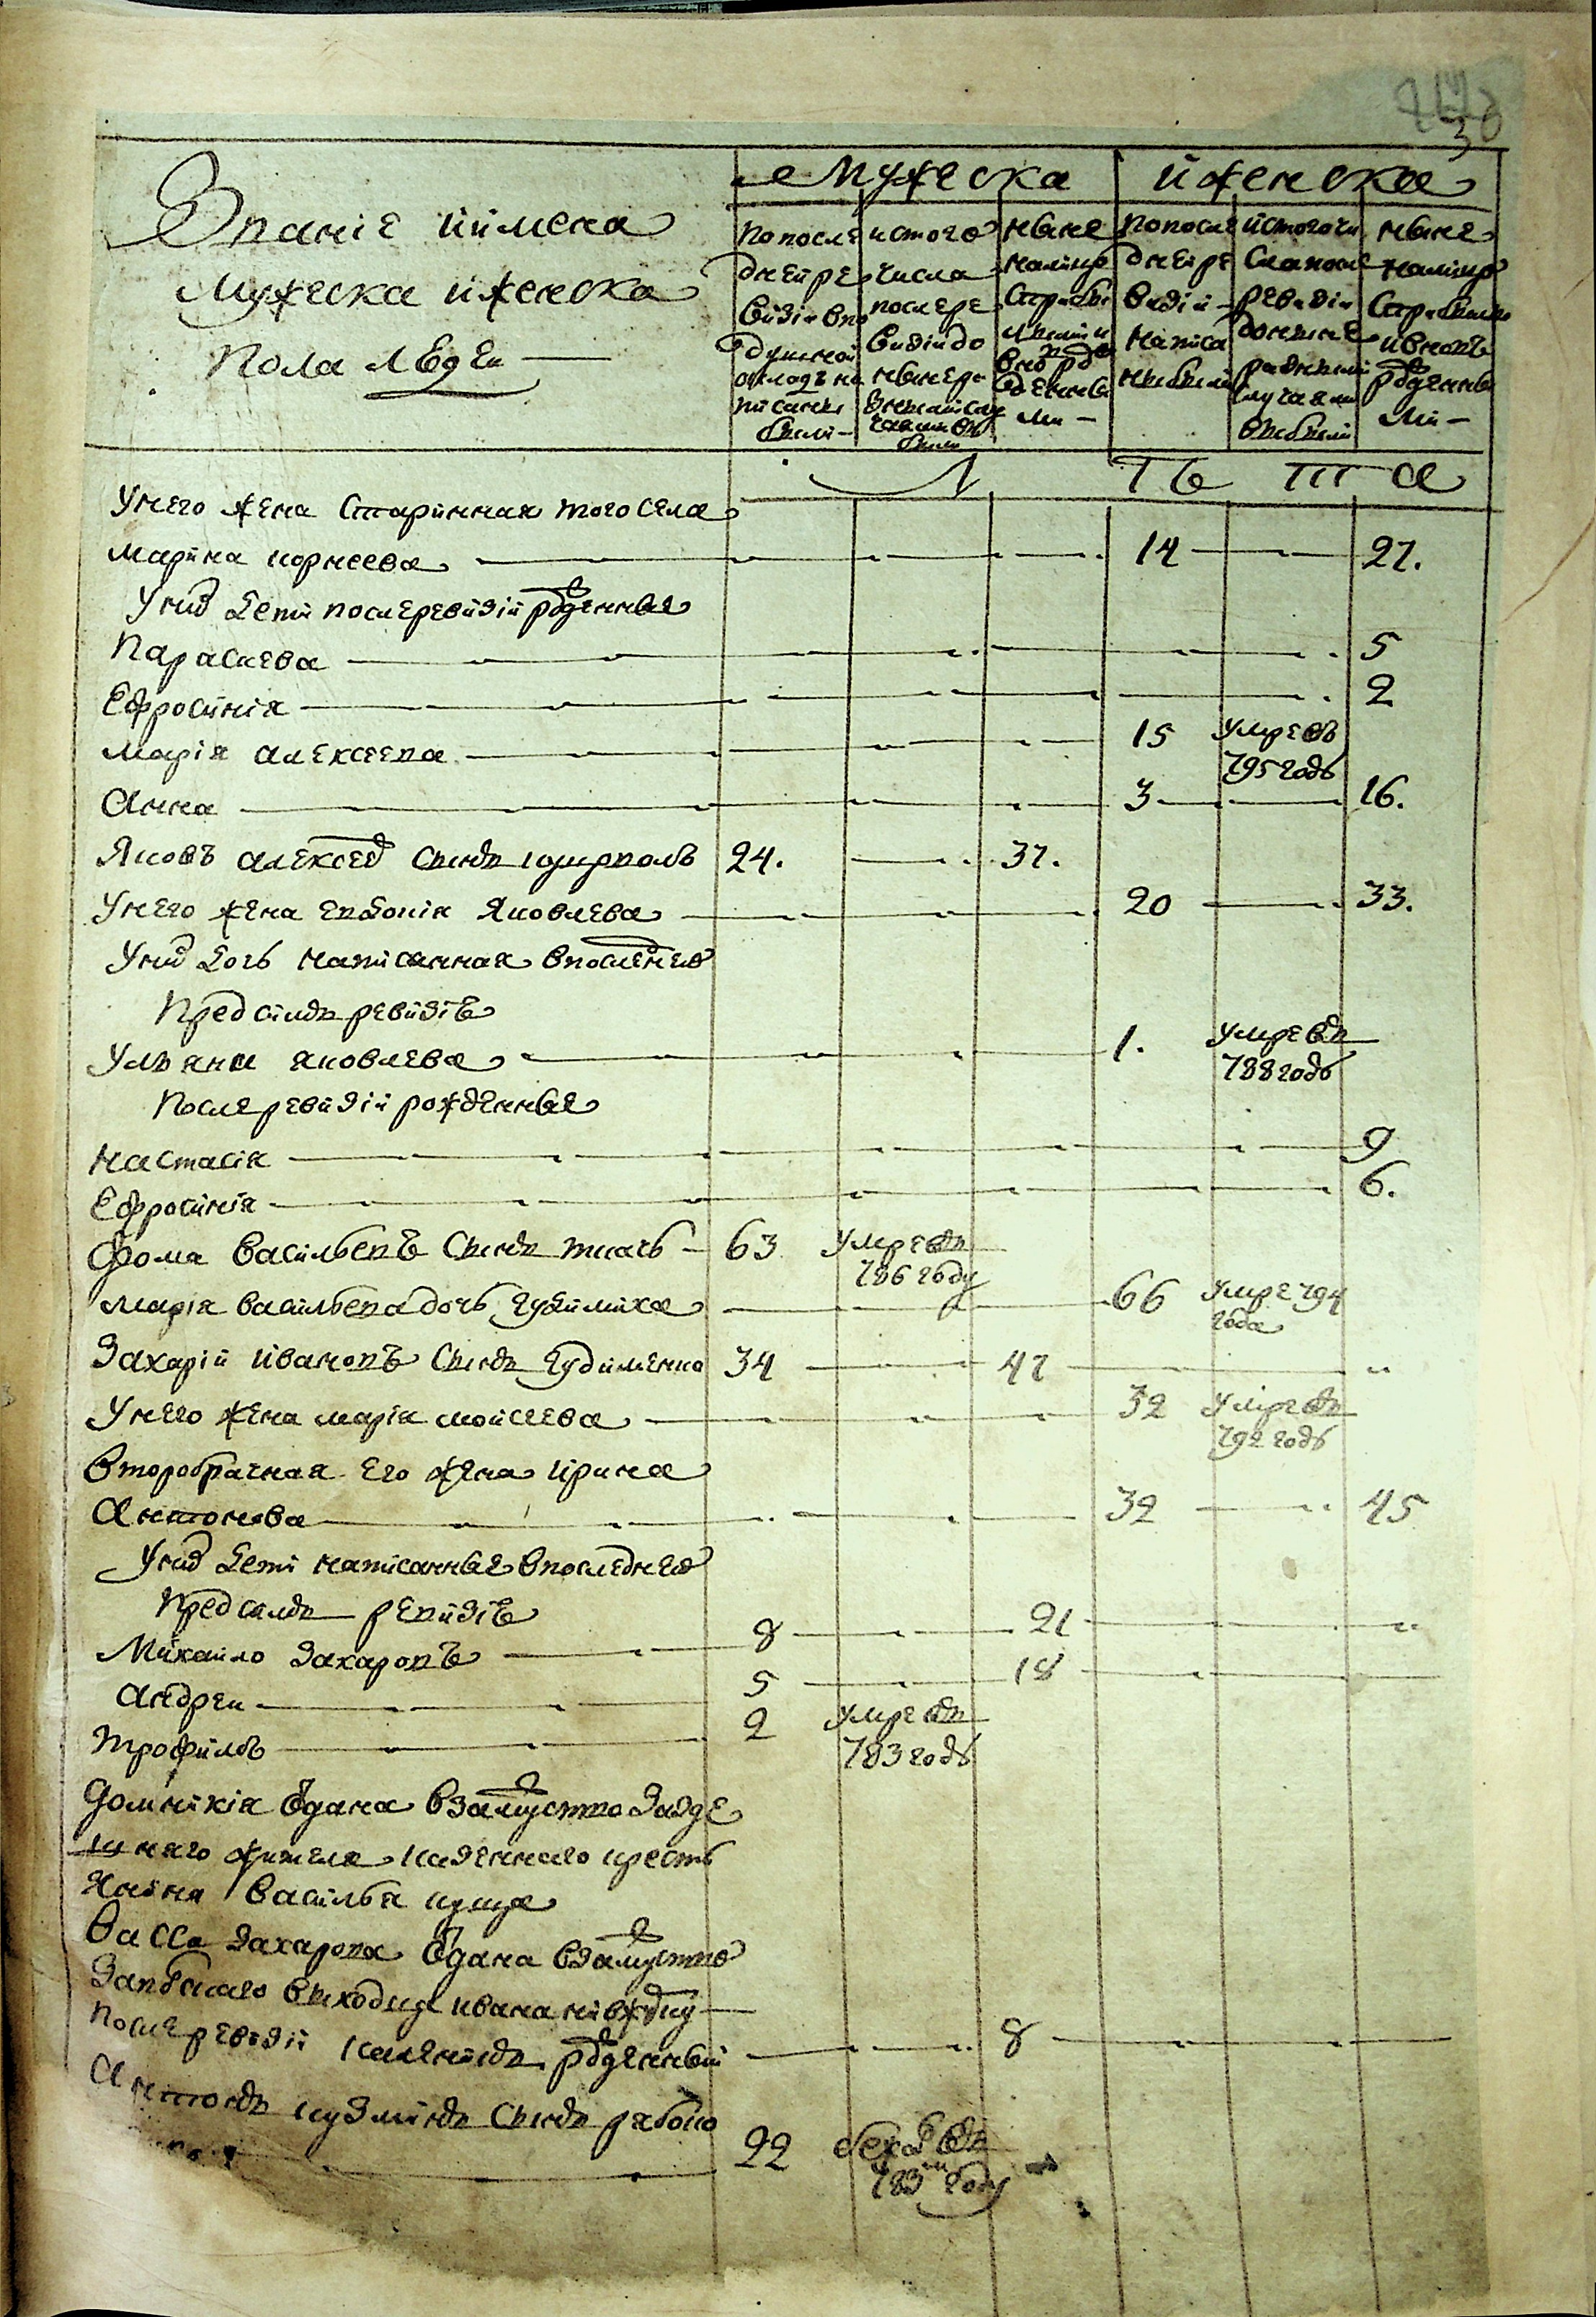 30
Званіе и имена
мужеска и женска
пола людей
мужеска
и женска
по после
дней ре
визіи въ по
душной
окладъ на
писаны
были
ис того
числа
после ре
визіи до
ныне ра
зными слу
чаями вы
были
ныне
на лицо
съ прибы
лыми и
вновь ро
жденны
ми
по после
дней ре
визіи
написа
ны были
ис того чи
сла после
ревизіи
до ныне
разными
случаями
выбыли
ныне
на лицо
съ прибылыми
и вновь
рожденны
ми
Л Ѣ т а
у него жена старинная того села
марина корнеева 14 27.
у них дети после ревизіи рожденные
параскева 5
ефросинія 2
марія алексеева 15 умре въ 795 годѣ
анна 3 16.
яковъ алексеевъ сынъ 24. 37.
у него жена евдокія яковлева 20 33.
у них дочь написанная в последней
пред симъ ревизіѣ
ульяна яковлева 1. умре въ 788 годѣ
после ревизіи рожденные
настасія 9
ефросинія 6.
фома васильевъ сынъ ткачь 63 умре въ 786 году
марія васильева дочь гудимиха 66 умре 794 года
захарій ивановъ сынъ гудименко 34 47
у него жена марія моисеева 32 умре въ 792 годѣ
второбрачная его жена ирина
антонова 32 45
у них дети написанные в последней
пред симъ ревизіѣ
михайло захаровъ 8 21
андреи 5 18
трофимъ 2 умре въ 783 годѣ
домникія отдана в замуство за зде
шнего жителя казенного кресть
янина василья куща
васса захарова отдана в замуство
за полского выходца ивана
после ревизіи рожденный 8
антонъ кузминъ сынъ
22 бежал въ 783 м году